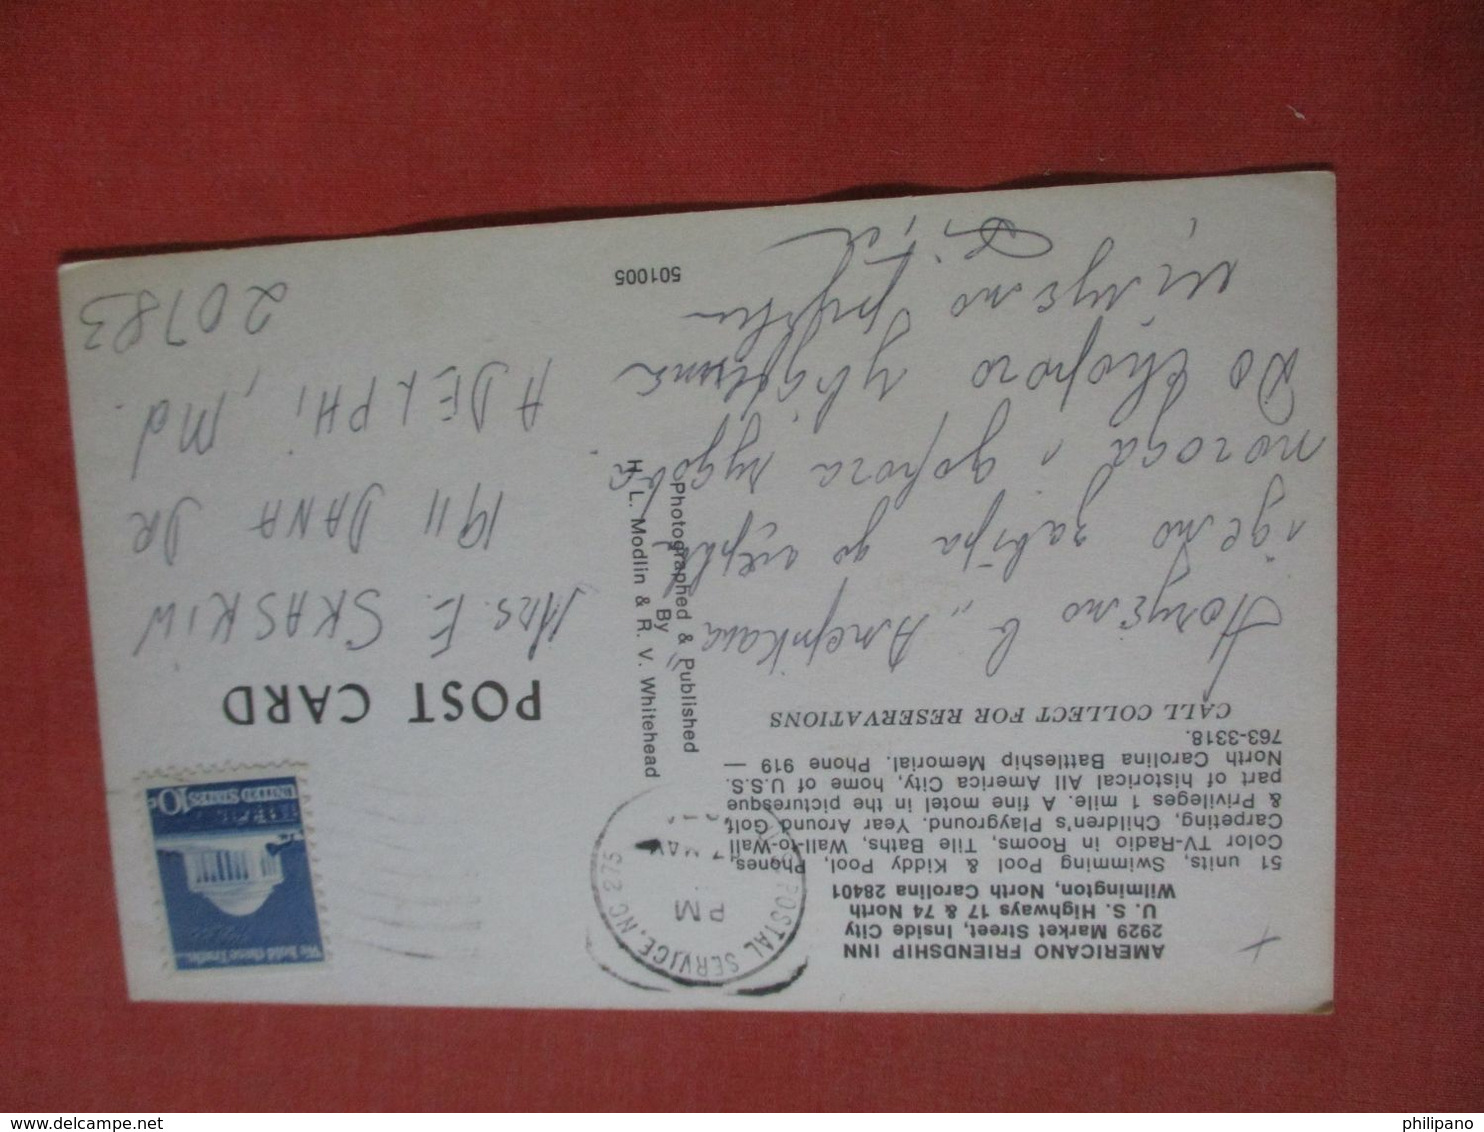 AMERICANO FRIENDSHIP INN
2929 Market Street, Inside City
U. S. Highways 17 & 74 North
Wilmington, North Carolina 28401
51 units, Swimming Pool & Kiddy Pool, Phones,
Color TV-Radio in Rooms, Tile Baths, Wall-to-Wall
Carpeting, Children's Playground. Year Around Golf
& Privileges 1 mile. A fine motel in the picturesque
part of historical All America City, home of U.S.S.
North Carolina Battleship Memorial. Phone 919 —
763-3318.
CALL COLLECT FOR RESERVATIONS
Ночуємо в "Амерікана"
ідемо завтра до
погода і дорога чудова
До скорого
Цілуємо
501005
Photographed & Published
By
H. L. Modlin & R. V. Whitehead
POSTAL SERVICE, NC 275
PM
7 MAY
We hold these Truths...
UNITED STATES 10c
POST CARD
Mrs. E. SKASKIW
1911 DANA DR
ADELPHI, Md.
20783
philipano